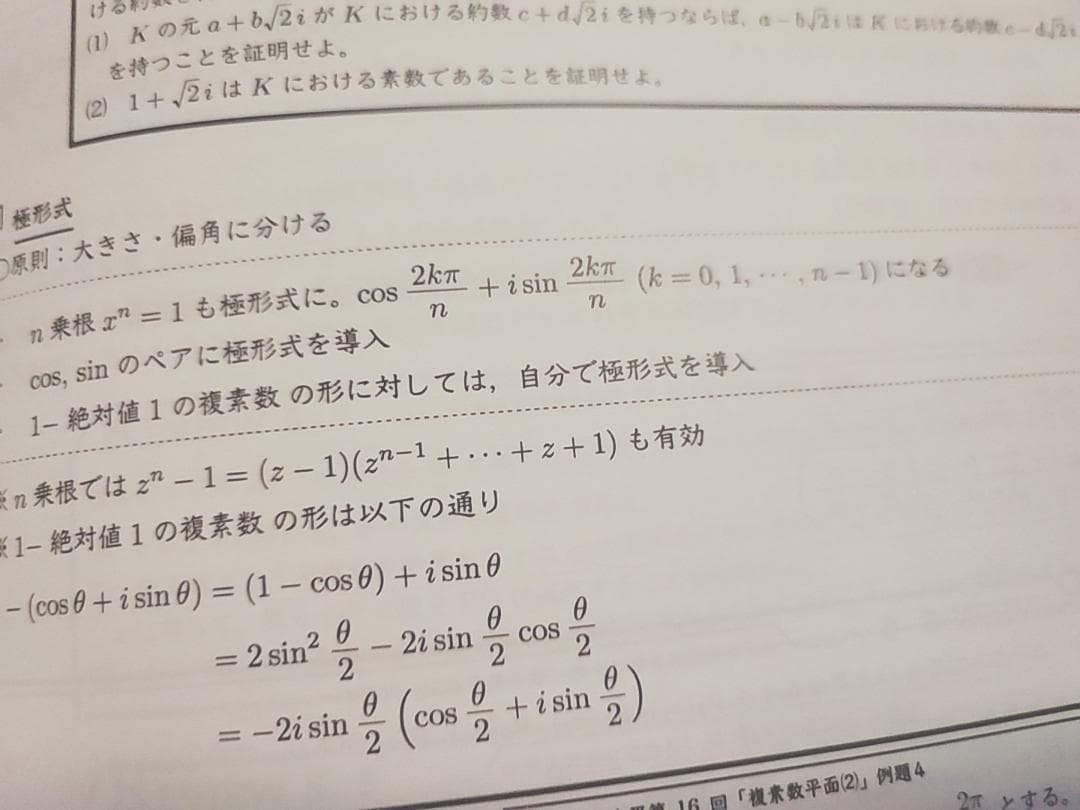 ける約数
(1) K の元 a + b√2i が K における約数 c + d√2i を持つならば，a − b√2i は K における約数 c − d√2i
を持つことを証明せよ。
(2) 1 + √2i は K における素数であることを証明せよ。
極形式
原則：大きさ・偏角に分ける
n 乗根 xⁿ = 1 も極形式に。cos 2kπ/n + i sin 2kπ/n (k = 0, 1, ⋯, n − 1) になる
cos, sin のペアに極形式を導入
1− 絶対値 1 の複素数 の形に対しては，自分で極形式を導入
※ n 乗根では zⁿ − 1 = (z − 1)(zⁿ⁻¹ + ⋯ + z + 1) も有効
※ 1− 絶対値 1 の複素数 の形は以下の通り
− (cos θ + i sin θ) = (1 − cos θ) + i sin θ
= 2 sin² θ/2 − 2i sin θ/2 cos θ/2
= −2i sin θ/2 (cos θ/2 + i sin θ/2)
第 16 回「複素数平面(2)」例題4
2π とする。